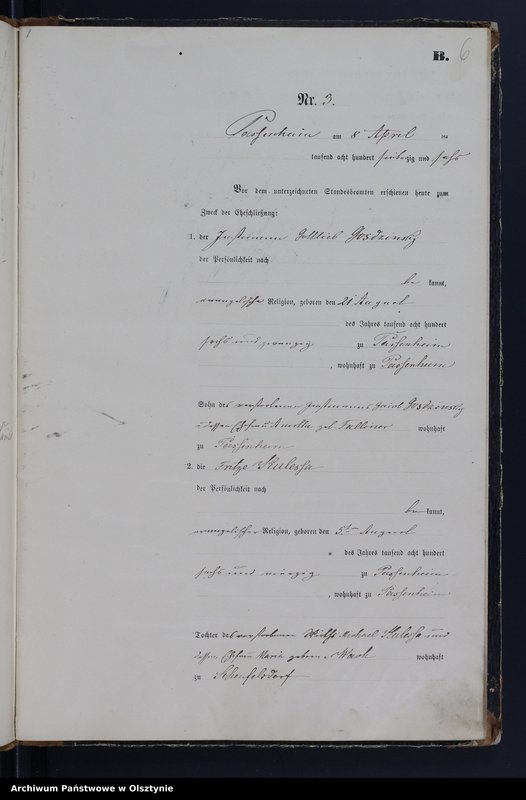 B. 6
Nr. 3.
Passenheim am 8 April
tausend acht hundert siebenzig und sechs
Vor dem unterzeichneten Standesbeamten erschienen heute zum
Zweck der Eheschließung:
1. der Instmann Gottlieb Gosdzinsky
der Persönlichkeit nach
be kannt,
evangelische Religion, geboren den 21 August
des Jahres tausend acht hundert
sechs und zwanzig zu Passenheim
, wohnhaft zu Passenheim
Sohn des verstorbenen Instmanns Jacob Gosdzinsky
u dessen Ehefrau geb wohnhaft
zu Passenheim
2. die Fritze Kulessa
der Persönlichkeit nach
be kannt,
evangelischer Religion, geboren den 5t August
des Jahres tausend acht hundert
sechs und vierzig zu Passenheim
, wohnhaft zu Passenheim
Tochter des verstorbenen Wirths Michael Kulessa und
dessen Ehefrau Maria geborene wohnhaft
zu
Archiwum Państwowe w Olsztynie